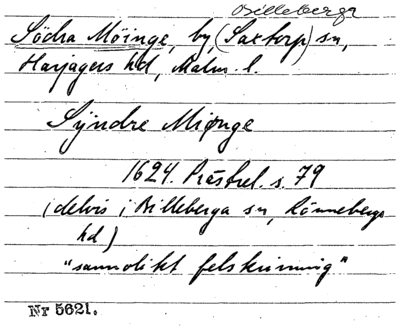 Billeberga
Södra Möinge, by, (Saxtorp) sn,
Harjagers hd, Malm. l.
Syndre Miønge
1624. Prästrel. s. 79
(delvis i Billeberga sn, Rönnebergs
hd)
"sannolikt felskrivning"
Nr 5621.